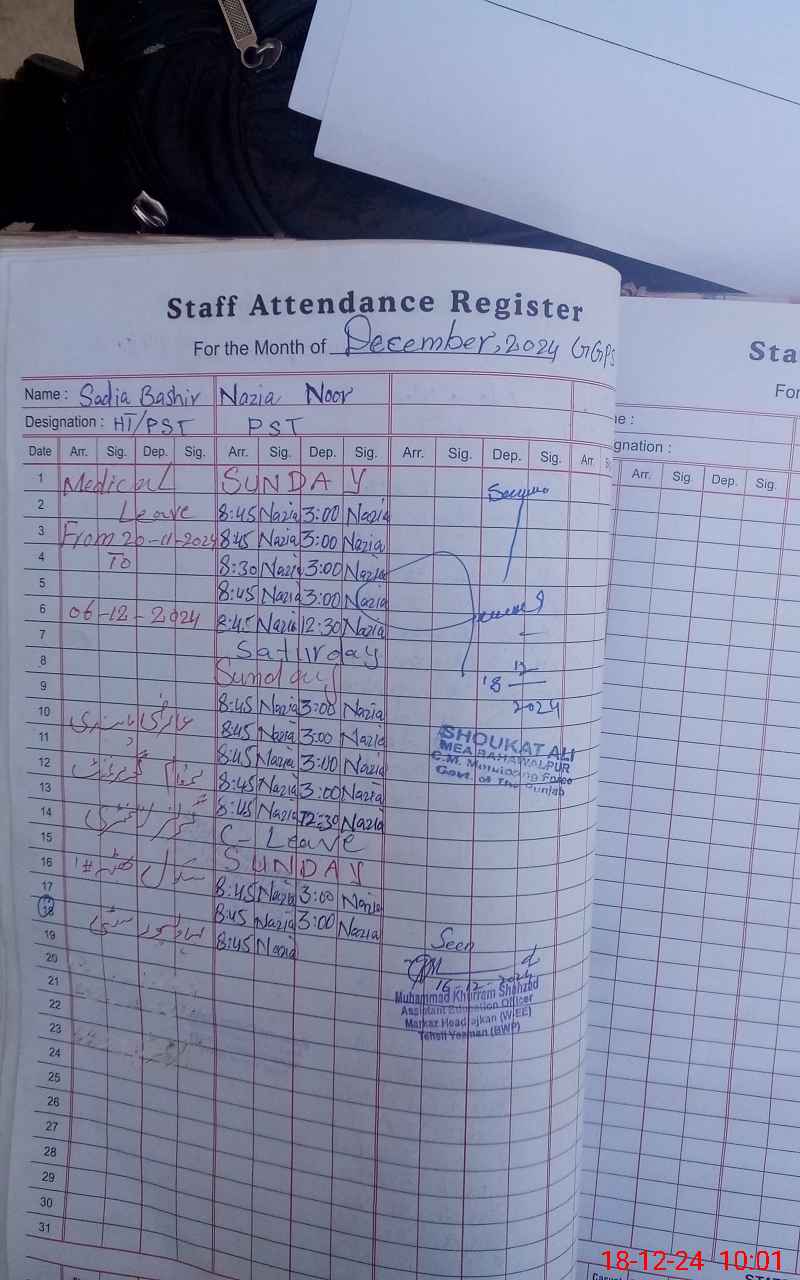 Staff Attendance Register
For the Month of December, 2024 GGPS
Name : Sadia Bashir Nazia Noor
Designation : HT/PST PST
Date Arr. Sig. Dep. Sig. Arr. Sig. Dep. Sig. Arr. Sig. Dep. Sig. Arr.
1 Medical SUNDAY
2 Leave 8:45 Nazia 3:00 Nazia
3 From 20-11-2024 8:45 Nazia 3:00 Nazia
4 To 8:30 Nazia 3:00 Nazia
5 8:45 Nazia 3:00 Nazia
6 06-12-2024 8:45 Nazia 12:30 Nazia
7 Saturday
8 Sunday
9 8:45 Nazia 3:00 Nazia
10 8:45 Nazia 3:00 Nazia
11 8:45 Nazia 3:00 Nazia
12 8:45 Nazia 3:00 Nazia
13 8:45 Nazia 12:30 Nazia
14 C-Leave
15 SUNDAY
16 8:45 Nazia 3:00 Nazia
17 8:45 Nazia 3:00 Nazia
18 8:45 Nazia
19
20
21
22
23
24
25
26
27
28
29
30
31
18
12
2024
SHOUKAT ALI
MEA BAHAWALPUR
C.M. Monitoring Force
Govt. of The Punjab
Seen
16-12-2024
Muhammad Khurram Shahzad
Assistant Education Officer
Markaz Head Rajkan (W-EE)
Tehsil Yazman (BWP)
Sta
For
gnation :
Arr. Sig. Dep. Sig.
18-12-24 10:01